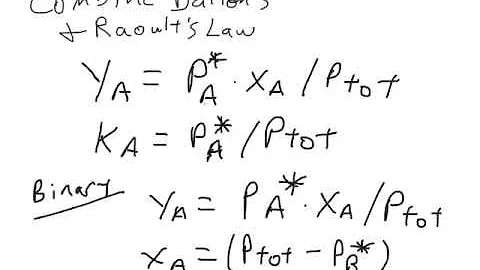 Combine Dalton's
& Raoult's Law
Y_A = P_A^* · X_A / P_tot
K_A = P_A^* / P_tot
Binary
Y_A = P_A^* · X_A / P_tot
X_A = (P_tot - P_B^*)